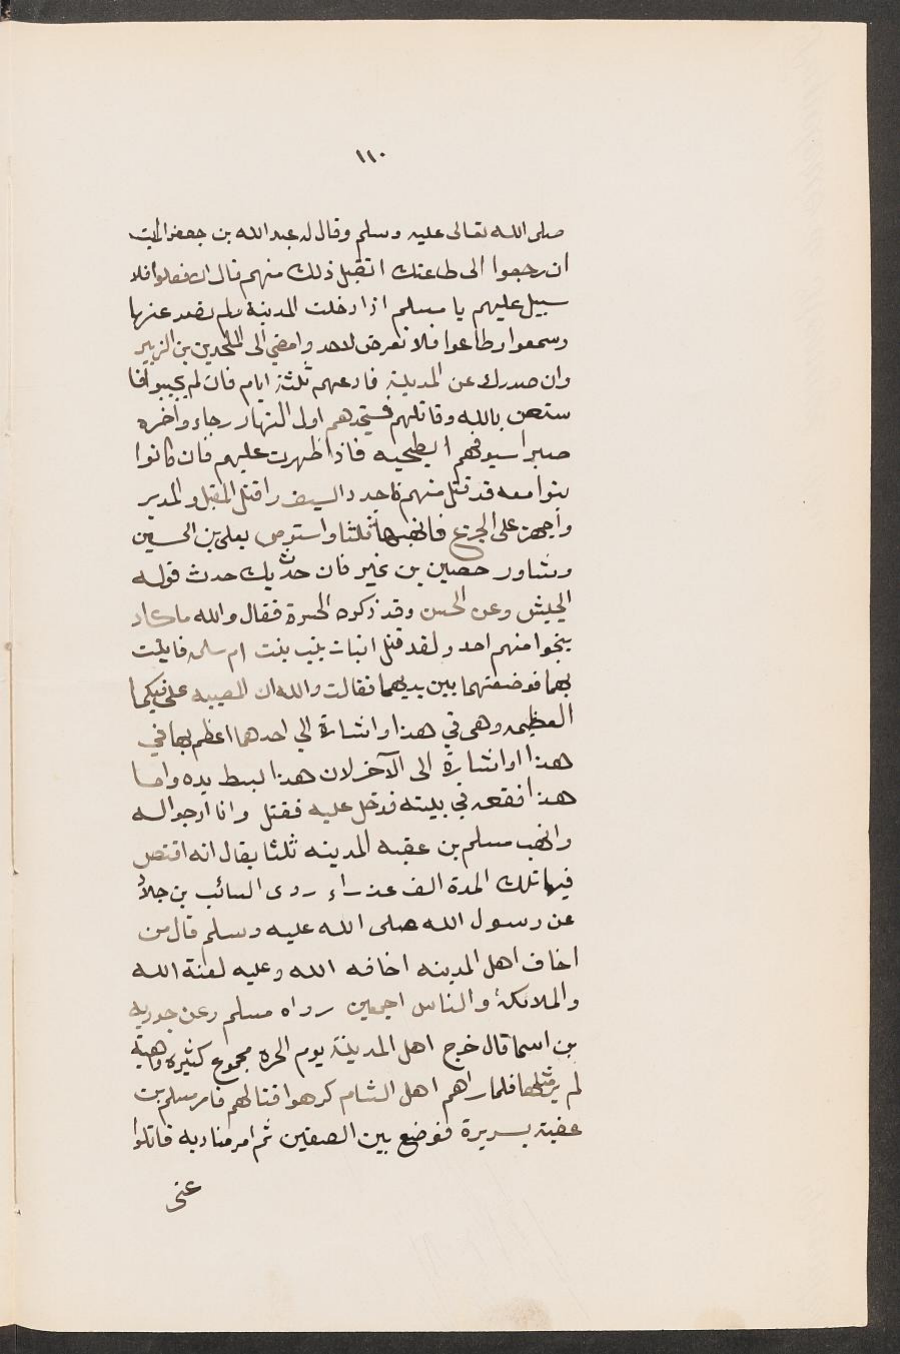 ١١٠
صلى الله تعالى عليه وسلم وقال له عبد الله بن جعفر ارايت
ان رجعوا الى طاعتك اتقبل ذلك منهم قال ان فعلوا فلا
سبيل عليهم يا مسلم اذا دخلت المدينة ولم تصد عنها
وسمعوا وطاعوا فلا تعرض لاحد وامضي الى الملحد بن الزبير
وان صدوك عن المدينة فادعهم ثلثة ايام فان لم يجيبوا فا
ستعن بالله وقاتلهم فستجدهم اول النهار رجاء واخره
صبرا سيوفهم ابطحيه فاذا ظهرت عليهم فان كانوا
بنو امية قد قتل منهم فاجرد السيف واقتل المقبل والمدبر
واجهز على الجرع فانهبها ثلثا واستوص بعلي بن الحسين
وشاور حصين بن نمير فان حدث بك حدث فوله
الجيش وعن الحسن وقد ذكروه الحرة فقال والله ما كاد
ينجوا منهم احد ولقد قتل ابنان زينب بنت ام سلمه فايتت
بهما فوضعتهما بين يديهما فقالت والله ان المصيبه على فيكما
العظيمه وهي في هذا واشارة الي احدهما اعظم بها في
هذا واشارة الى الآخر لان هذا لبسط يده واما
هذا فقعد في بيته فدخل عليه فقتل وانا ارجو اله
وانهب مسلم بن عقبه المدينه ثلثا يقال انه افتض
فيها تلك المدة الف عذراء روى السائب بن خلاد
عن رسول الله صلى الله عليه وسلم قال من
اخاف اهل المدينه اخافه الله وعليه لعنة الله
والملائكة والناس اجمعين رواه مسلم وعن جوريه
بن اسما قال خرج اهل المدينة يوم الحرة بجموع كثيره وهيئة
لم ير مثلها فلما راهم اهل الشام كرهوا قتالهم فامر مسلم بن
عقبة بسريرة فوضع بين الصفين ثم امر مناديه قاتلوا
عني